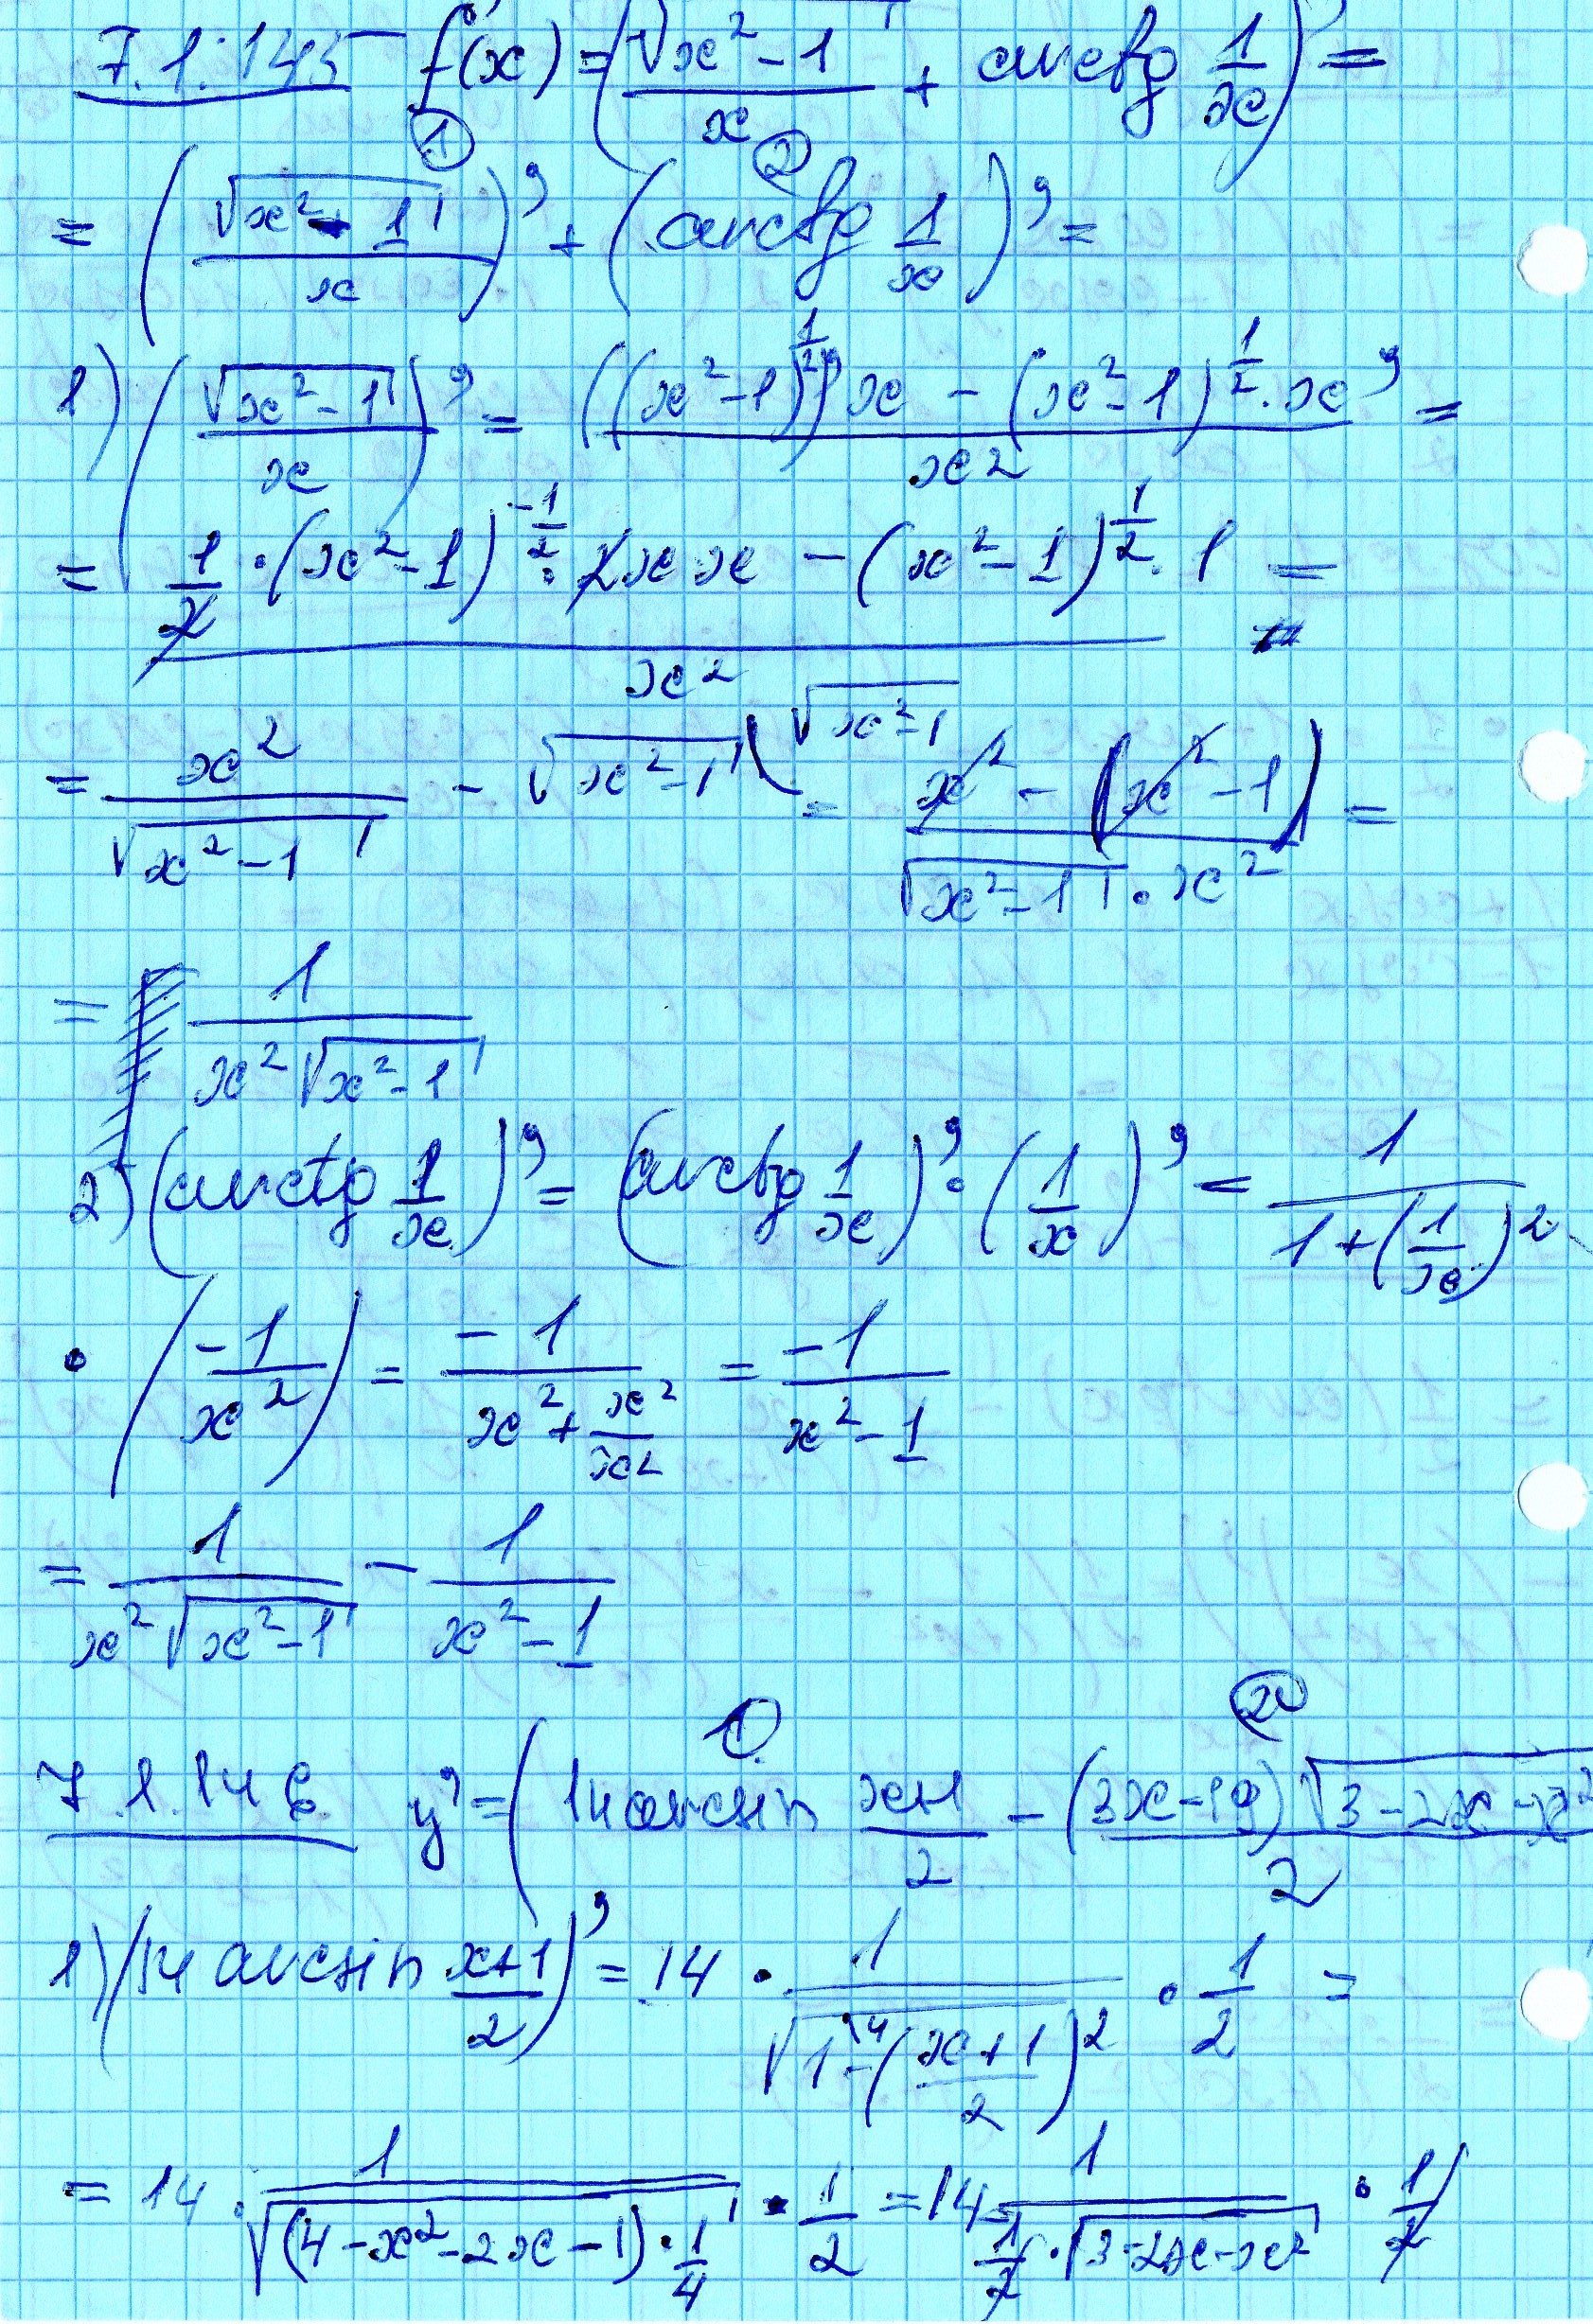 7.1.145 f'(x) = (√(x² - 1)/x + arctg 1/x)' =
① ②
= (√(x² - 1)/x)' + (arctg 1/x)' =
1) (√(x² - 1)/x)' = (((x² - 1)^(1/2))' x - (x² - 1)^(1/2) · x')/x² =
= (1/2 · (x² - 1)^(-1/2) · 2x x - (x² - 1)^(1/2) · 1)/x² =
= x²/√(x² - 1) - √(x² - 1) \ √(x² - 1) = (x² - (x² - 1))/(√(x² - 1) · x²) =
= 1/(x² √(x² - 1))
2) (arctg 1/x)' = (arctg 1/x)' · (1/x)' = 1/(1 + (1/x)²)
· (-1/x²) = -1/(x² + x²/x²) = -1/(x² - 1)
= 1/(x² √(x² - 1)) - 1/(x² - 1)
① ②
7.1.146 y' = (14 arcsin (x+1)/2 - (3x - 19)√(3 - 2x - x²)/2
1) (14 arcsin (x+1)/2)' = 14 · 1/√(1\4 - ((x+1)/2)²) · 1/2 =
= 14 · 1/√((4 - x² - 2x - 1) · 1/4) · 1/2 = 14 · 1/(1/2 · √(3 - 2x - x²)) · 1/2